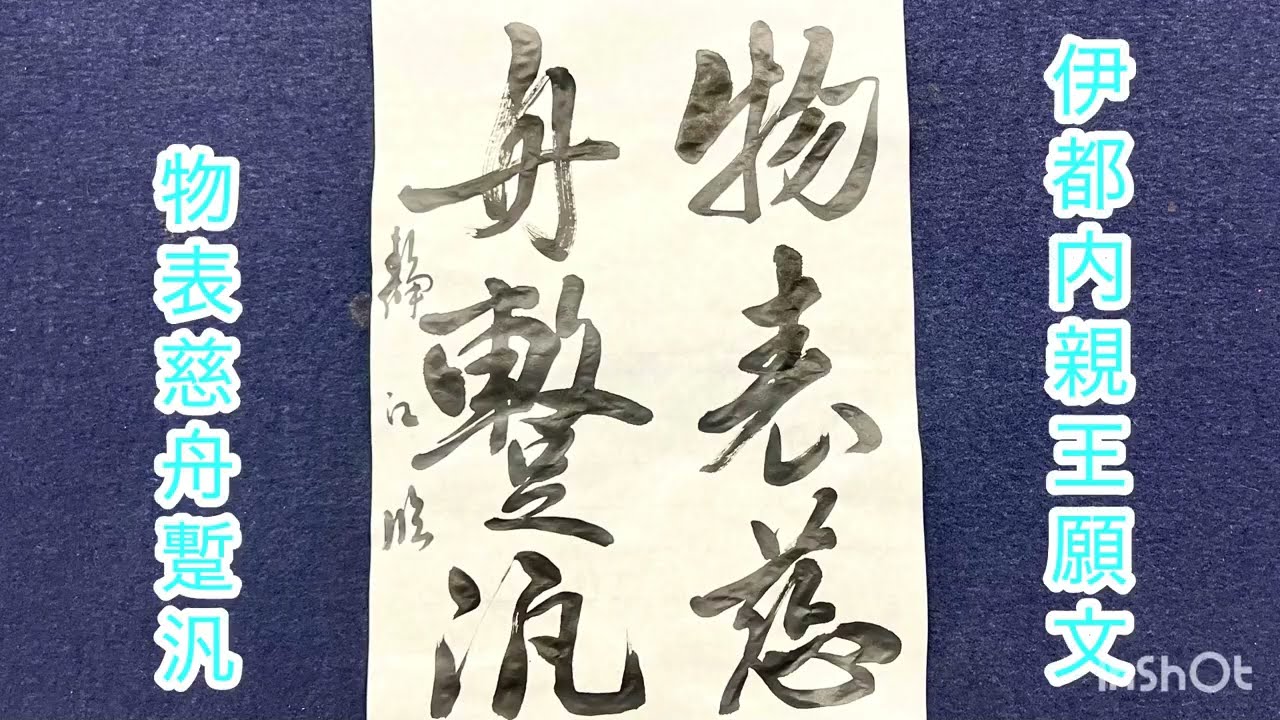 伊都内親王願文
物表慈
舟蹔汎
靜江臨
物表慈舟蹔汎
InShOt